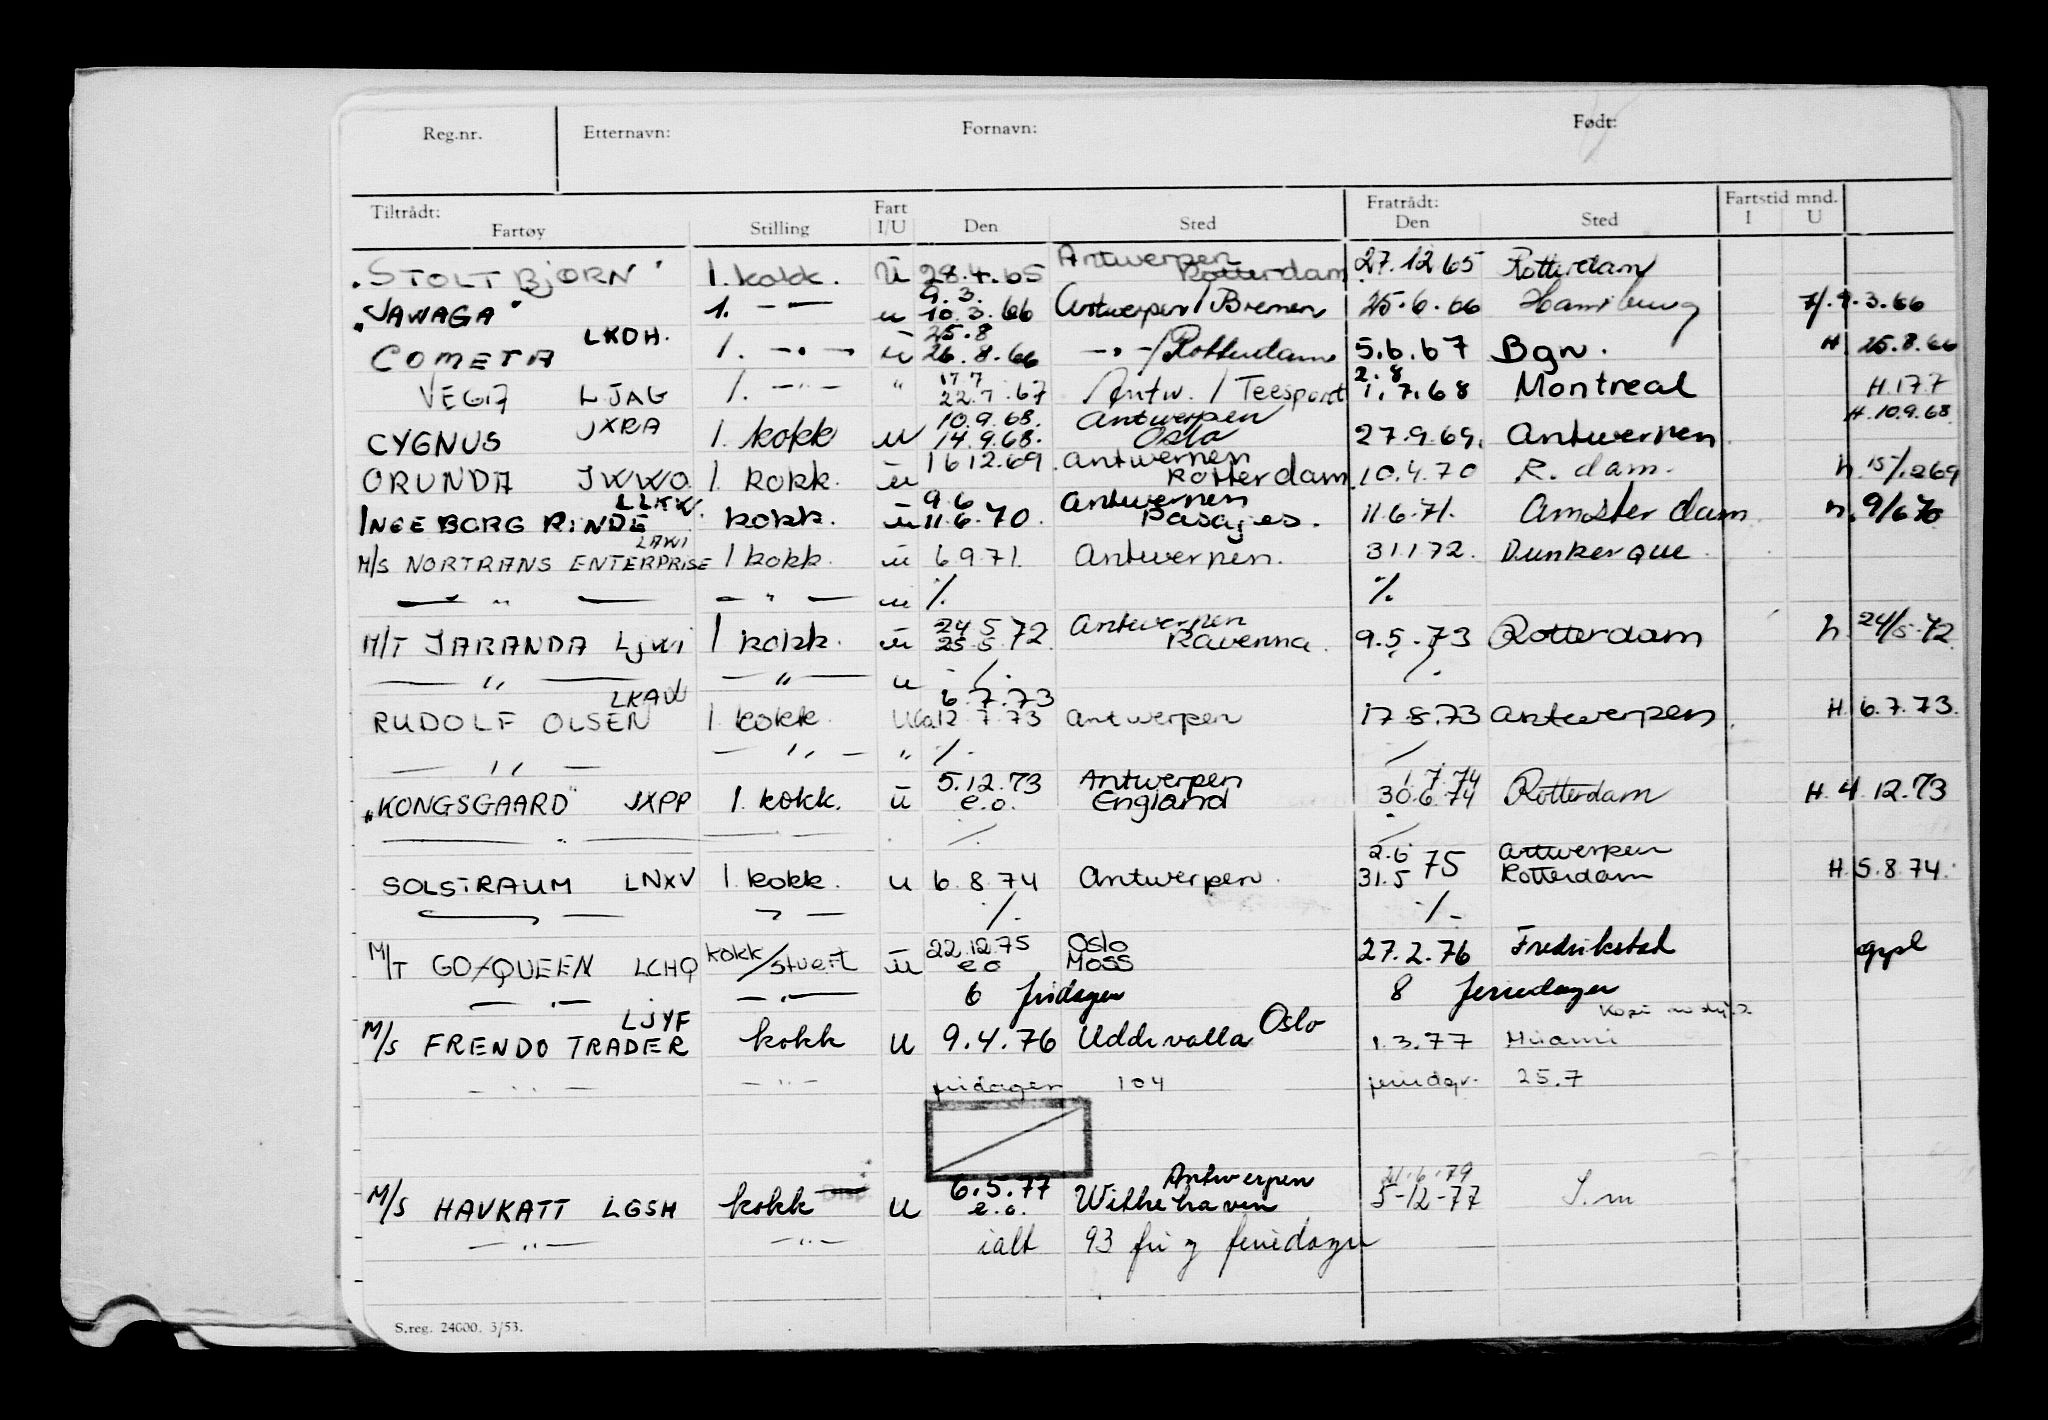 Reg.nr. Etternavn: Fornavn: Født:
Tiltrådt: Fart Fratrådt: Fartstid mnd.
Fartøy Stilling I/U Den Sted Den Sted I U
"STOLT BJØRN" 1. kokk. U 28.4.65 Antwerpen Rotterdam 27.12 65 Rotterdam
"JAWAGA" 1. — " — u 9.3. 10.3.66 Antwerpen/Bremen 25.6.66 Hamburg 7/. 9.3.66
COMETA LKDH. 1. — " — u 25.8 26.8.66 — " —/Rotterdam 5.6.67 Bgn. H 25.8.66
VEGA LJAG 1. — " — " 17.7 22.7.67 Antw. / Teesport 2.8 1.7.68 Montreal H.17.7
CYGNUS JXRA 1. kokk u 10.9.68. 14.9.68. Antwerpen Oslo 27.9.69. Antwerpen H.10.9.68
ORUNDA JWWO 1. kokk. u 16 12.69. Antwerpen Rotterdam 10.4.70 R. dam. h. 15/12 69
INGEBORG RINDE LLKW. kokk. u 9 6 11.6.70. Antwerpen Pasajes. 11.6.71. Amsterdam h. 9/6 70
M/S NORTRANS ENTERPRISE LAWI 1 kokk. u 6 9 71. Antwerpen. 31.1 72. Dunkerque
— " — — " — u ./. ./.
M/T JARANDA LJWI 1 kokk. u 24 5 25 5 72. Antwerpen Ravenna. 9.5.73 Rotterdam h. 24/5.72
— " — — " — u ./. ./.
RUDOLF OLSEN LKAW 1. kokk. U 6.7.73 12.7.73 Antwerpen 17.8.73 Antwerpen. H. 6.7.73.
— " — — " — " ./. ./.
"KONGSGAARD" JXPP 1. kokk. u 5.12.73 e.o. Antwerpen England 1.7.74 30.6.74 Rotterdam H. 4.12.73
— " — ./. ./.
SOLSTRAUM LNXV 1. kokk. u 6.8.74 Antwerpen. 2.6 31.5 75 Antwerpen Rotterdam H. 5.8.74.
— " — — " — ./. ./.
M/T GO-QUEEN LCHQ kokk/stuert u 22.12.75 e.o Oslo Moss 27.2.76 Fredrikstad oppl
— " — — " — 6 fridager 8 feriedager
M/S FRENDO TRADER LJYF kokk u 9.4.76 Uddevalla Oslo 1.3.77 Miami
— " — — " — fridager 104 feriedgr. 25.7
M/S HAVKATT LGSH kokk u 6.5.77 e.o. Antwerpen Wilhehaven 21.6.79 5-12-77 S.m
— " — — " — ialt 93 fri og feriedager
S.reg. 24000. 3/53.